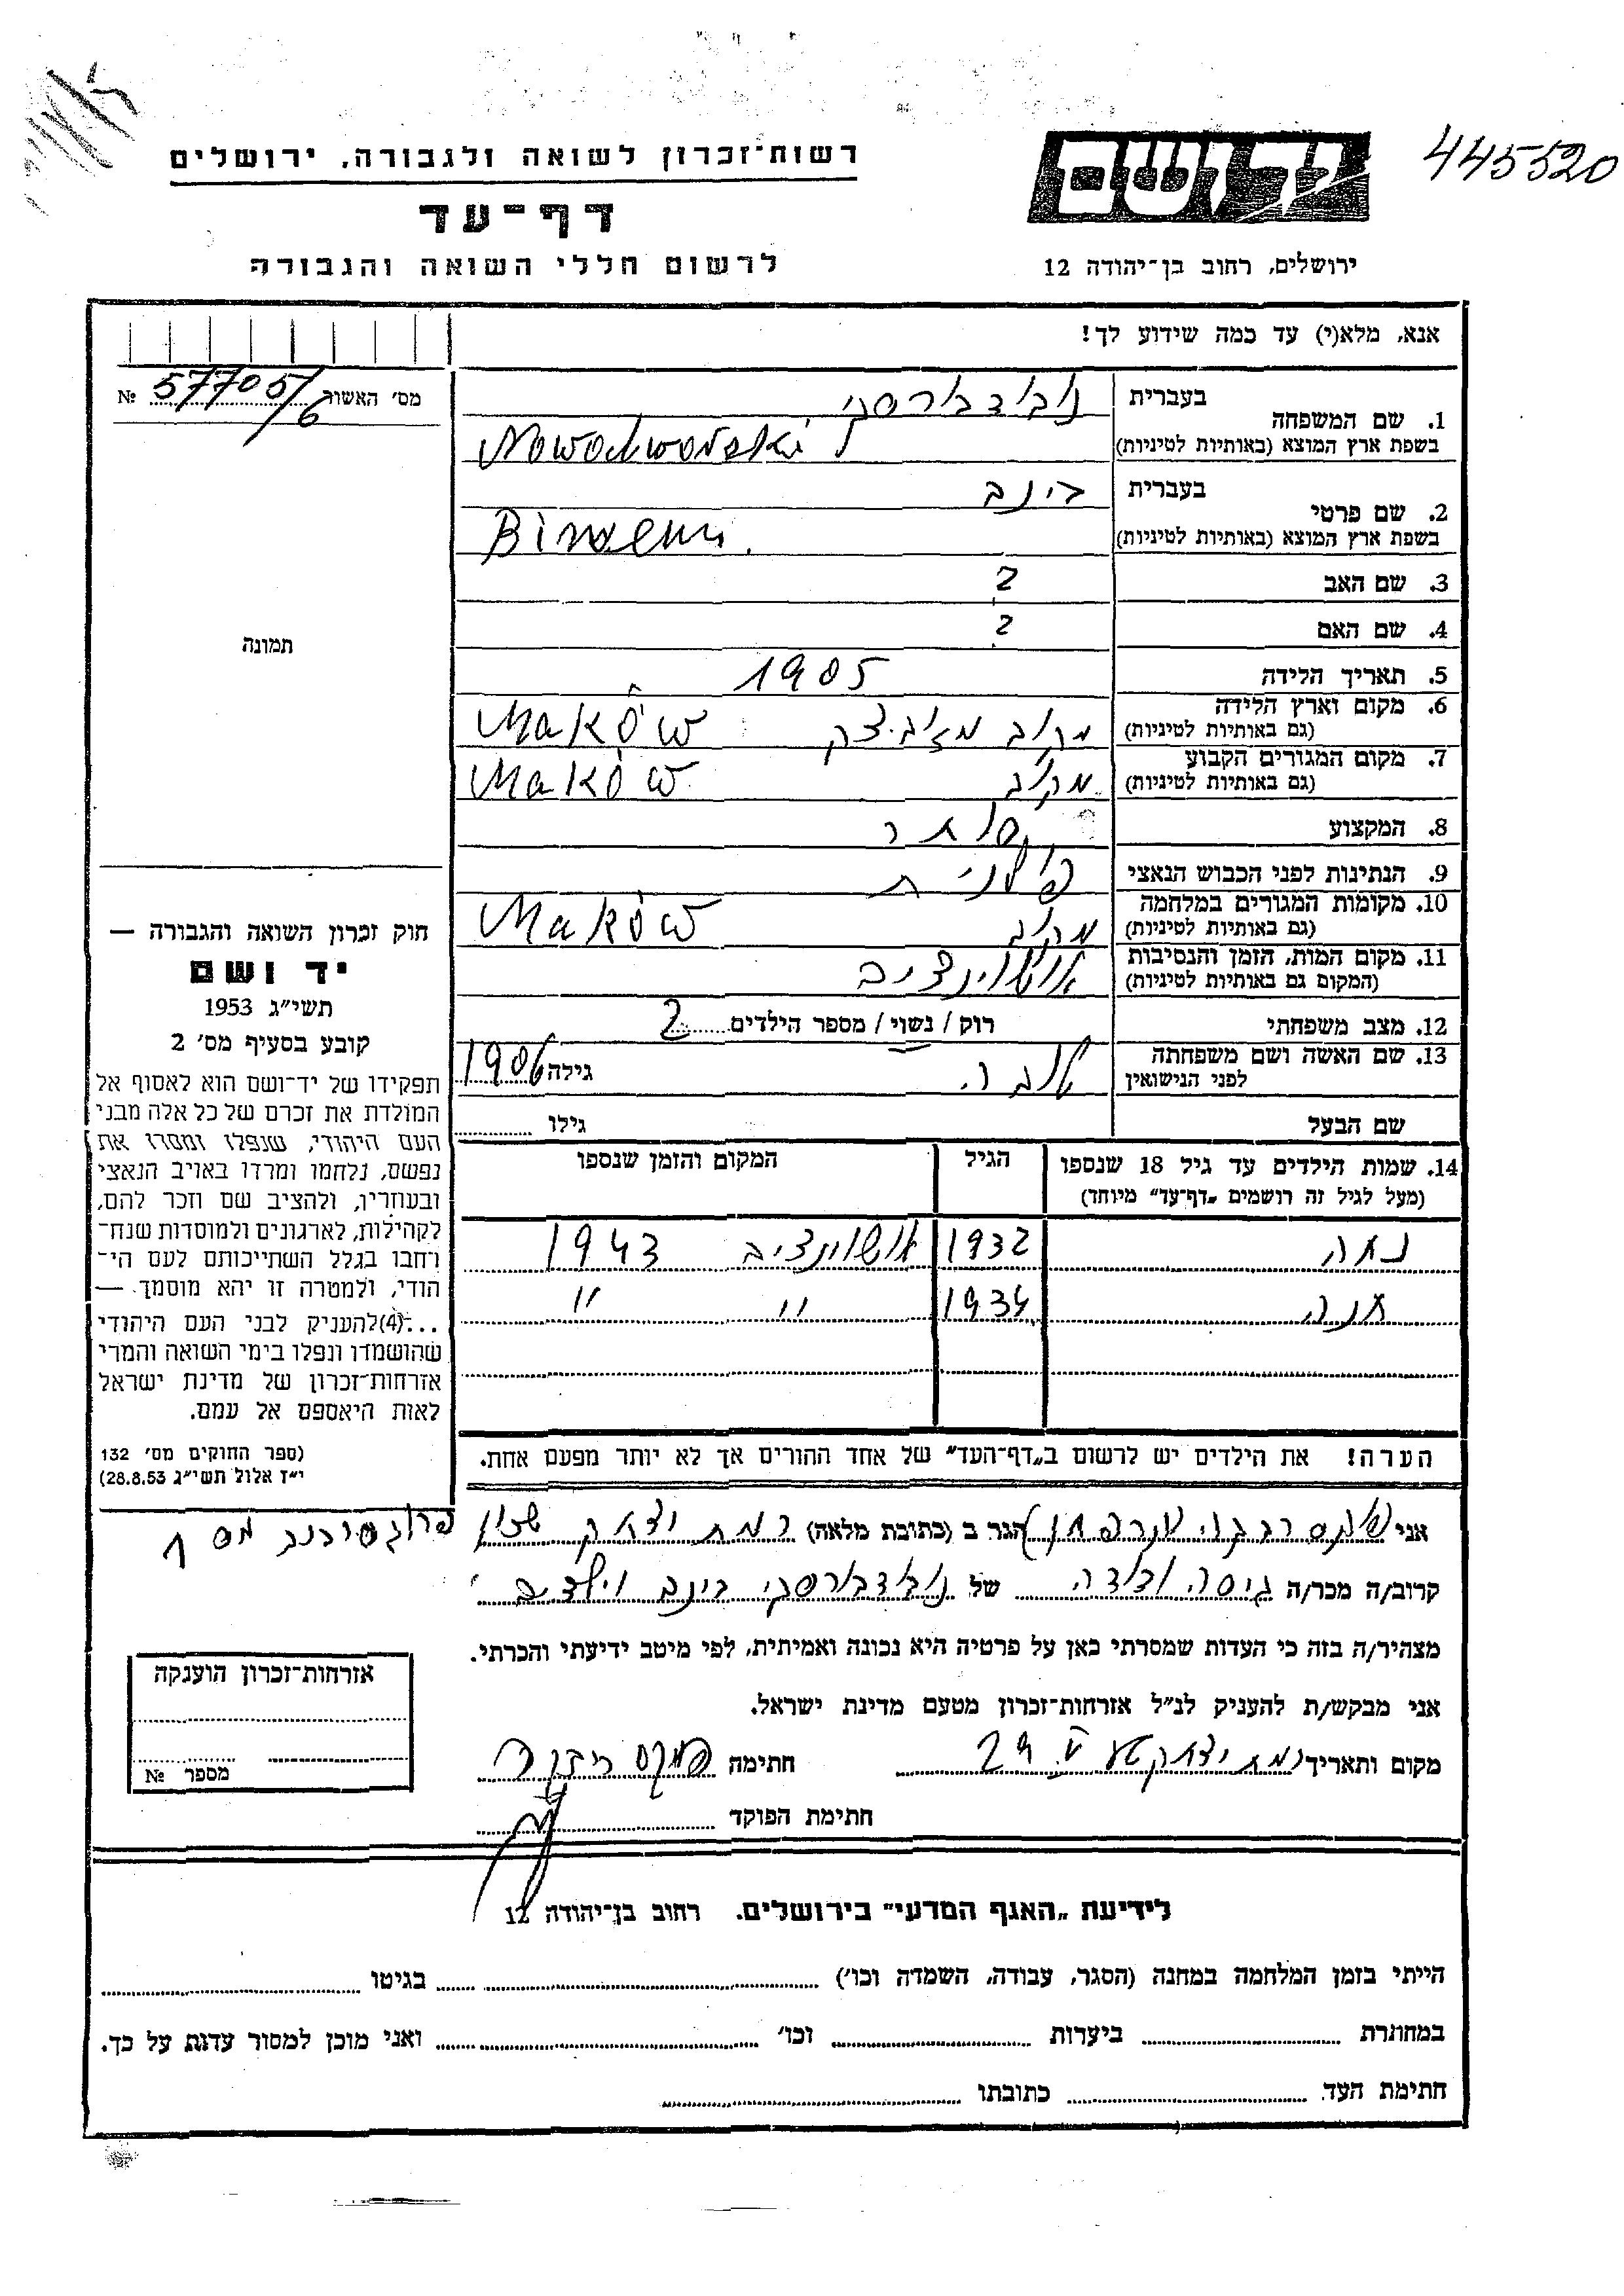 445520
רשות־זכרון לשואה ולגבורה, ירושלים
יד ושם
דף־עד
ירושלים, רחוב בן־יהודה 12
לרשום חללי השואה והגבורה
אנא, מלא(י) עד כמה שידוע לך!
מס׳ האשור № 57705/6
1. שם המשפחה
בעברית
נובודבורסקי
בשפת ארץ המוצא (באותיות לטיניות)
Nowodworski
2. שם פרטי
בעברית
בינם
בשפת ארץ המוצא (באותיות לטיניות)
3. שם האב ?
4. שם האם ?
תמונה
5. תאריך הלידה 1905
6. מקום וארץ הלידה
(גם באותיות לטיניות)
מקוב מזוביצק Maków
7. מקום המגורים הקבוע
(גם באותיות לטיניות)
מקוב Maków
8. המקצוע סוחר
9. הנתינות לפני הכבוש הנאצי פולנית
10. מקומות המגורים במלחמה
(גם באותיות לטיניות)
מקוב Maków
11. מקום המות, הזמן והנסיבות
(המקום גם באותיות לטיניות)
אושוינצים
12. מצב משפחתי רוק / נשוי / מספר הילדים 2
13. שם האשה ושם משפחתה
לפני הנישואין
גילה 1906
שם הבעל גילו
14. שמות הילדים עד גיל 18 שנספו
(מעל לגיל זה רושמים „דף־עד” מיוחד)
הגיל
המקום והזמן שנספו
נחה 1932 אושוינצים 1943
חנה 1934 " "
הערה! את הילדים יש לרשום ב„דף־העד” של אחד ההורים אך לא יותר מפעם אחת.
חוק זכרון השואה והגבורה —
יד ושם
תשי״ג 1953
קובע בסעיף מס׳ 2
תפקידו של יד־ושם הוא לאסוף אל
המולדת את זכרם של כל אלה מבני
העם היהודי, שנפלו ומסרו את
נפשם, נלחמו ומרדו באויב הנאצי
ובעוזריו, ולהציב שם וזכר להם,
לקהילות, לארגונים ולמוסדות שנח־
רחבו בגלל השתייכותם לעם הי־
הודי, ולמטרה זו יהא מוסמך —
...(4)להעניק לבני העם היהודי
שהושמדו ונפלו בימי השואה והמרי
אזרחות־זכרון של מדינת ישראל
לאות היאספם אל עמם.
(ספר החוקים מס׳ 132
י״ז אלול תשי״ג 28.8.53)
אני הגר ב (כתובת מלאה) רמת יצחק
קרוב/ה מכר/ה גיסה ודודה של נובודבורסקי בינם וילדיו
מצהיר/ה בזה כי העדות שמסרתי כאן על פרטיה היא נכונה ואמיתית, לפי מיטב ידיעתי והכרתי.
אני מבקש/ת להעניק לנ״ל אזרחות־זכרון מטעם מדינת ישראל.
מקום ותאריך חתימה
חתימת הפוקד
אזרחות־זכרון הוענקה
מספר №
לידיעת „האגף המדעי” בירושלים. רחוב בן־יהודה 12
הייתי בזמן המלחמה במחנה (הסגר, עבודה, השמדה וכו׳) בגיטו
במחתרת ביערות וכו׳ ואני מוכן למסור עדות על כך.
חתימת העד כתובתו